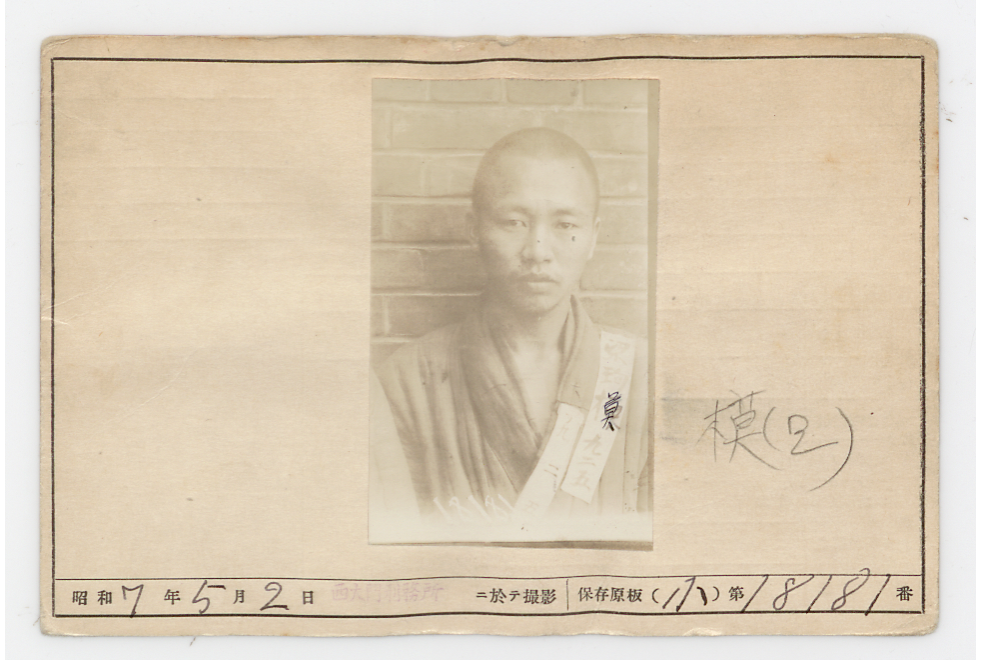 莫
九二五
二
18181
模(모)
昭和7年5月2日 西大門刑務所 ニ於テ撮影 保存原板(小)第18181番